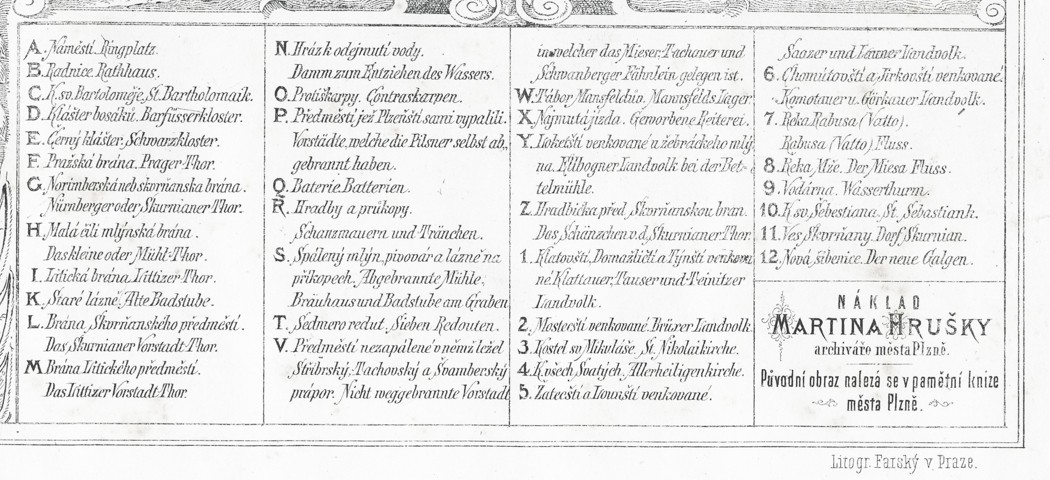 A. Náměstí. Ringplatz.
B. Radnice. Rathhaus.
C. K. sv. Bartoloměje. St. Bartholomaik.
D. Klášter bosáků. Barfüsserkloster.
E. Černý klášter. Schwarzkloster.
F. Pražská brána. Prager-Thor.
G. Norimberská neb skvrňanska brána.
Nürnberger oder Skurnianer-Thor.
H. Malá čili mlýnská brána.
Das kleine oder Mühl-Thor.
I. Litická brána. Littizer-Thor.
K. Staré lázně. Alte Badstube.
L. Brána Skvrňanského předměstí.
Das Skurnianer Vorstadt-Thor.
M. Brána Litického předměstí.
Das Littizer Vorstadt-Thor.
N. Hráz k odejmutí vody.
Damm zum Entziehen des Wassers.
O. Protiškarpy. Contraskarpen.
P. Předměstí jež Plzeňští sami vypálili.
Vorstädte, welche die Pilsner selbst ab,
gebrannt haben.
Q. Baterie. Batterien.
R. Hradby a průkopy.
Schanzmauern und Tränchen.
S. Spálený mlýn, pivovár a lázně na
příkopech. Abgebrannte Mühle,
Bräuhaus und Badstube am Graben.
T. Sedmero redut. Sieben Redouten.
V. Předměstí nezapálené v němž ležel
Stříbrský, Tachovský a Švamberský
prápor. Nicht weggebrannte Vorstadt
in welcher das Mieser, Tachauer und
Schwanberger Fähnlein gelegen ist.
W. Tábor Mansfeldův. Mannsfelds Lager.
X. Najmutá jízda. Geworbene Reiterei.
Y. Loketští venkované u žebráckého mlý,
na. Ellbogner Landvolk bei der Bet-
telmühle.
Z. Hradbička před Skvrňanskou bran.
Das Schänzchen v. d. Skurnianer Thor.
1. Klatovští, Domažličtí a Týnští venkova
né. Klattauer, Tauser und Teinitzer
Landvolk.
2. Mosterští venkované. Brüxer Landvolk.
3. Kostel sv. Mikuláše. St. Nikolaikirche.
4. K všech Svatých. Allerheiligenkirche.
5. Zatečtí a Lounští venkované.
Saazer und Launer Landvolk.
6. Chomutovští a Jirkovští venkované.
Komotauer u. Görkauer Landvolk.
7. Řeka Rabusa (Vatto).
Rabusa (Vatto) Fluss.
8. Řeka Mže. Der Miesa Fluss.
9. Vodárna. Wasserthurm.
10. K. sv. Šebestiana. St. Sebastiank.
11. Ves Skvrňany. Dorf Skurnian.
12. Nová šibenice. Der neue Galgen.
NÁKLAD
MARTINA HRUŠKY
archiváře města Plzně.
Původní obraz nalezá se v pamětní knize
města Plzně.
Litogr. Farský v Praze.